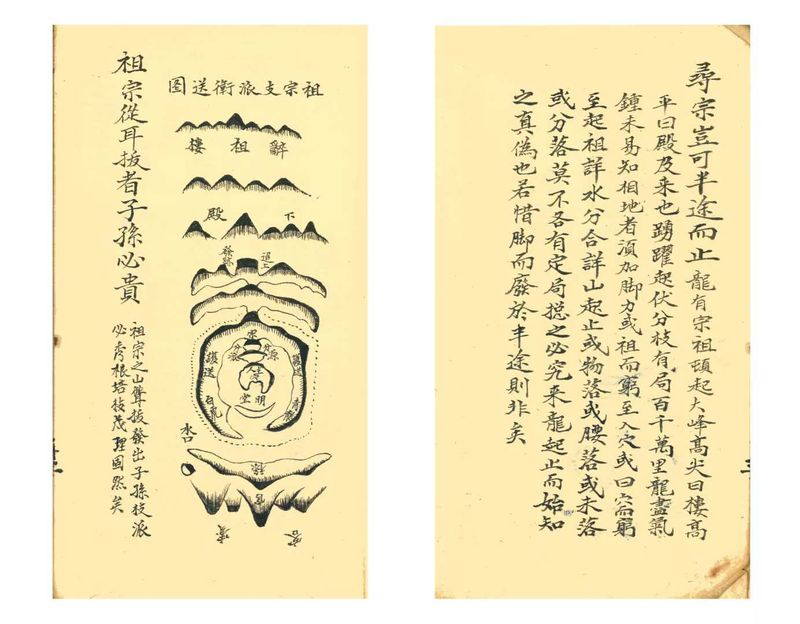 尋宗豈可半途而止 龍有宗祖頓起大峰高尖曰樓高
平曰殿及来也踴躍起伏分枝有局百千萬里龍盡氣
鍾未易知相地者須加脚力或祖而窮至入穴或曰穴而窮
至起祖詳水分合詳山起止或物落或腰落或未落
或分落莫不各有定局揔之必究来龍起止而始知
之真偽也若惜脚而廢於半途則非矣
祖宗支派衛送図
辭祖樓
下殿
宗
護送
護送
明堂
水口
案
祖宗從耳拔者子孫必貴
祖宗之山聳拔發出子孫枝派
必秀根培枝茂理固然矣